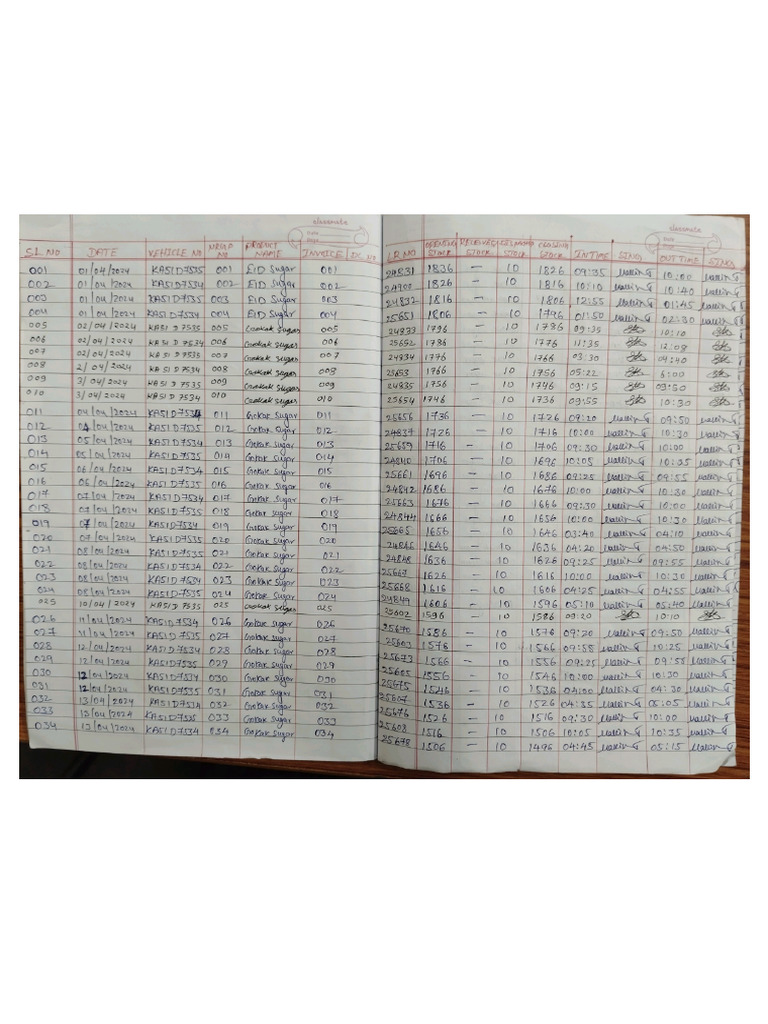 classmate
Date
Page
SL.NO DATE VEHICLE NO NRGP NO PRODUCT NAME INVOICE
001 01/04/2024 KA51D7535 001 EID Sugar 001
002 01/04/2024 KA51D7534 002 EID Sugar 002
003 01/04/2024 KA51D7535 003 EID Sugar 003
004 01/04/2024 KA51D7534 004 EID Sugar 004
005 02/04/2024 KA51D7535 005 Gookak Sugar 005
006 02/04/2024 KA51D7534 006 Gookak Sugar 006
007 02/04/2024 KA51D7535 007 Gookak Sugar 007
008 2/04/2024 KA51D7534 008 Gookak Sugar 008
009 3/04/2024 KA51D7535 009 Gookak Sugar 009
010 3/04/2024 KA51D7534 010 Gookak Sugar 010
011 04/04/2024 KA51D7534 011 Gokak Sugar 011
012 04/04/2024 KA51D7535 012 Gokak Sugar 012
013 05/04/2024 KA51D7534 013 Gokak Sugar 013
014 05/04/2024 KA51D7535 014 Gokak Sugar 014
015 06/04/2024 KA51D7534 015 Gokak Sugar 015
016 06/04/2024 KA51D7535 016 Gokak Sugar 016
017 07/04/2024 KA51D7534 017 Gokak Sugar 017
018 07/04/2024 KA51D7535 018 Gokak Sugar 018
019 07/04/2024 KA51D7534 019 Gokak Sugar 019
020 07/04/2024 KA51D7535 020 Gokak Sugar 020
021 08/04/2024 KA51D7535 021 Gokak Sugar 021
022 08/04/2024 KA51D7534 022 Gokak Sugar 022
023 08/04/2024 KA51D7534 023 Gokak Sugar 023
024 08/04/2024 KA51D7535 024 Gokak Sugar 024
025 10/04/2024 KA51D7535 025 Gookak Sugar 025
026 11/04/2024 KA51D7534 026 Gokak Sugar 026
027 11/04/2024 KA51D7535 027 Gokak Sugar 027
028 12/04/2024 KA51D7534 028 Gokak Sugar 028
029 12/04/2024 KA51D7535 029 Gokak Sugar 029
030 12/04/2024 KA51D7534 030 Gokak Sugar 030
031 12/04/2024 KA51D7535 031 Gokak Sugar 031
032 13/04/2024 KA51D7534 032 Gokak Sugar 032
033 13/04/2024 KA51D7535 033 Gokak Sugar 033
034 13/04/2024 KA51D7534 034 Gokak Sugar 034
classmate
Date
Page
LR NO OPENING STOCK STOCK STOCK CLOSING STOCK IN TIME SING OUT TIME SING
24831 1836 — 10 1826 09:35 10:00
24900 1826 — 10 1816 10:10 10:40
24832 1816 — 10 1806 12:55 01:45
25651 1806 — 10 1796 01:50 02:30
24833 1796 — 10 1786 09:35 10:10
25692 1786 — 10 1776 11:35 12:08
24834 1776 — 10 1766 03:30 04:40
25653 1766 — 10 1756 05:22 6:00
24835 1756 — 10 1746 09:15 09:30
25654 1746 — 10 1736 09:55 10:30
25656 1736 — 10 1726 09:20 09:50
24837 1726 — 10 1716 10:00 10:30
25659 1716 — 10 1706 09:30 10:00
24840 1706 — 10 1696 10:08 10:35
25661 1696 — 10 1686 09:25 09:55
24842 1686 — 10 1676 10:00 10:30
25663 1676 — 10 1666 09:30 10:00
24844 1666 — 10 1656 10:00 10:30
25665 1656 — 10 1646 03:40 04:10
24846 1646 — 10 1636 04:20 04:50
24848 1636 — 10 1626 09:25 09:55
25667 1626 — 10 1616 10:00 10:30
25668 1616 — 10 1606 04:25 04:55
24849 1606 — 10 1596 05:10 05:40
25602 1596 — 10 1586 09:20 10:10
25670 1586 — 10 1576 09:20 09:50
25603 1576 — 10 1566 09:58 10:25
25673 1566 — 10 1556 09:25 09:58
25605 1556 — 10 1546 10:00 10:30
25675 1546 — 10 1536 04:00 04:30
25607 1536 — 10 1526 04:35 05:05
25676 1526 — 10 1516 09:30 10:00
25608 1516 — 10 1506 10:05 10:35
25678 1506 — 10 1496 04:45 05:15